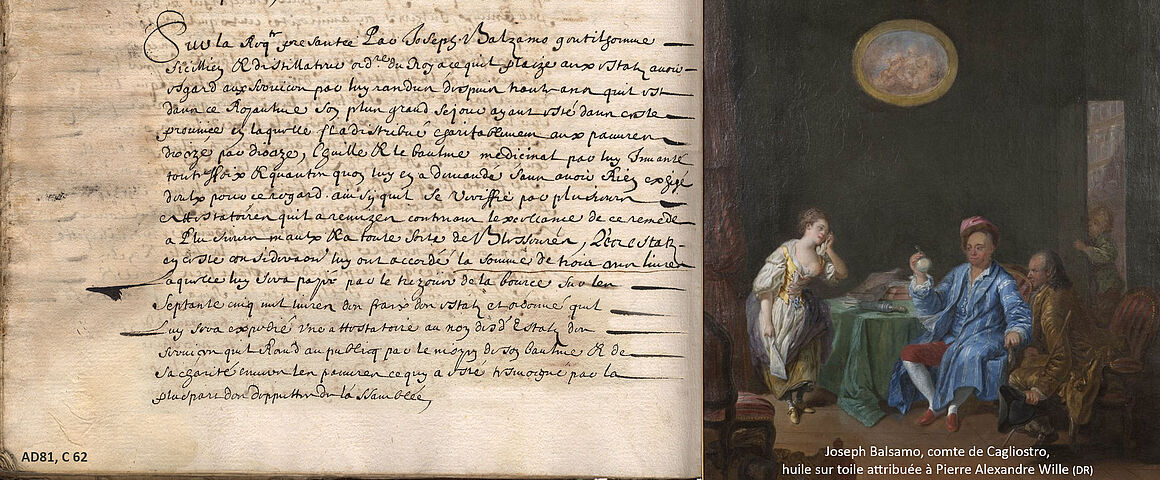 Sur la Reqte presantée Par Joseph Balzamo gentilhomme
Sicillien & distillateur ordre du Roy a ce quil plaize aux estatz avoir
esgard aux services par luy randus despuis trante ans quil est
dans ce Royaume Son plus grand Sejour ayant esté dans ceste
province en laquelle Il a distribué charitablement aux pauvres
dioceze par dioceze, Lhuille & le baulme medicinal par luy Invanté
touttesfois & quantes quon luy en a demandé sans avoir Rien exigé
deulx pour ce regard ainsy quil se veriffie par plusieurs
attestatoires quil a remizes contenant lexcellance de ce remede
a Plusieurs maulx & a toute sorte de Blessures, Lesd estatz
en ceste consideraon luy ont accordé la somme de trois ans livres
Laquelle luy sera payée par le trezorier de la bource sur les
septante cinq mil livres des frais des estatz et ordonné quil
Luy sera expedié Une attestatoire au nom desd Estatz des
services quil Rand au publicq par le moyen de son baulme & de
sa charité envers les pauvres ce quy a esté tesmoigné par la
pluspart des depputtés de lassamblée,
AD81, C 62
Joseph Balsamo, comte de Cagliostro,
huile sur toile attribuée à Pierre Alexandre Wille (DR)